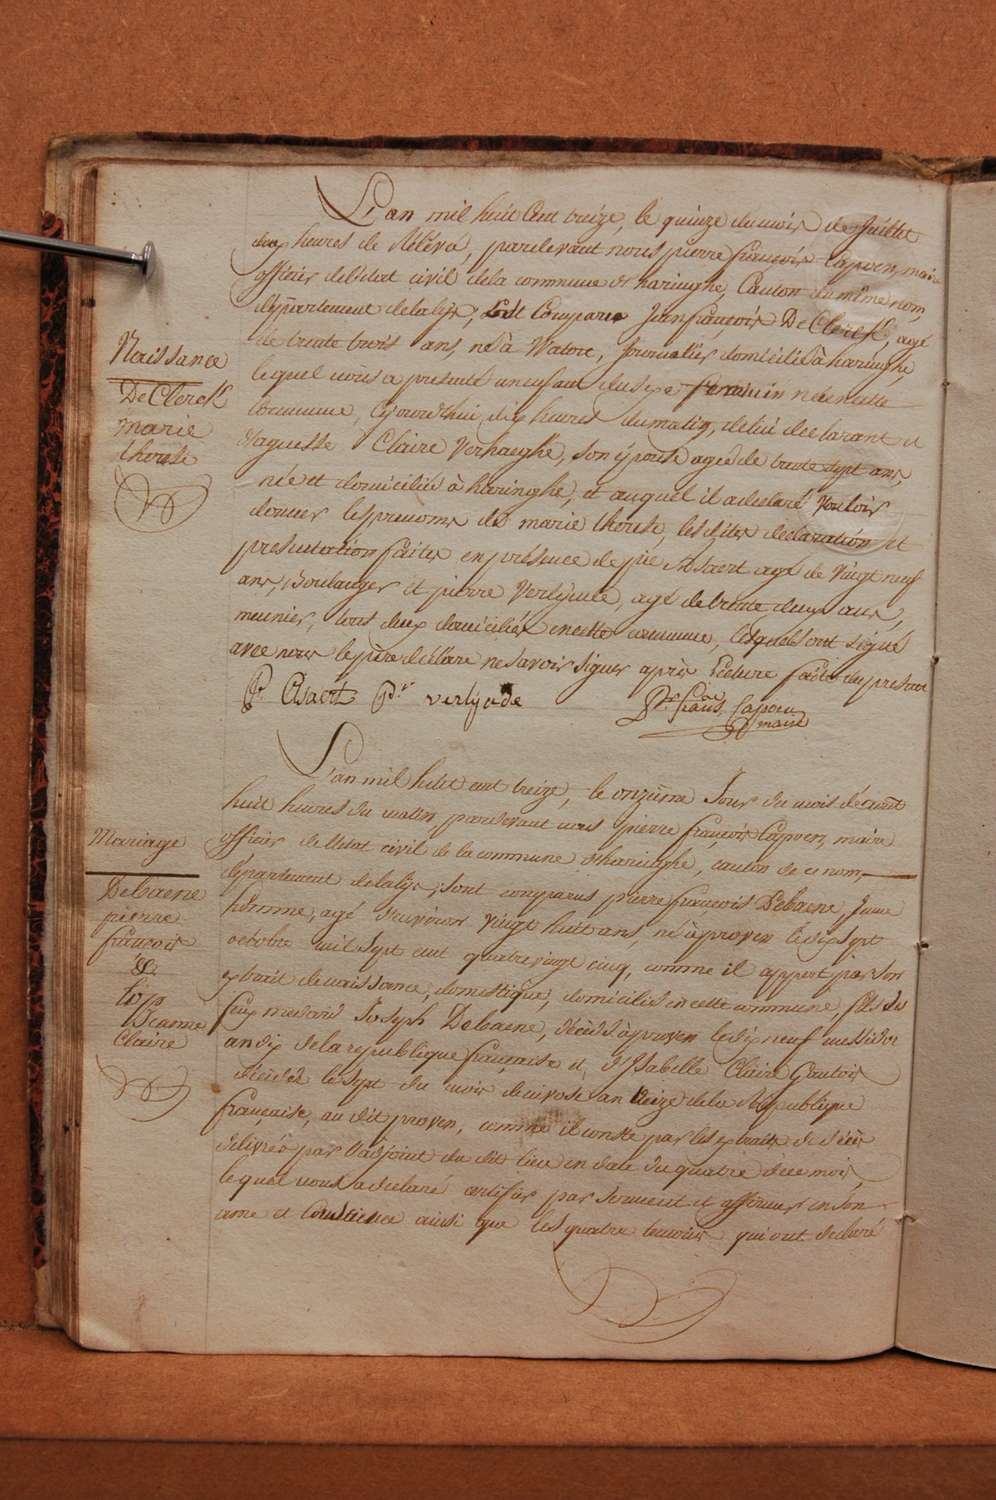 L'an mil huit Cent treize, le quinze du mois de Juillet
dix heures de Rélévé, pardevant nous pierre françois Capoen, maire
officier de l'état civil de la commune d'haringhe, Canton du même nom,
département de la lÿs, Est Comparu Jean françois De Clerck, agé
de trente trois ans, né à Watoue, Journalier domicilié à haringhe,
lequel nous a presenté un enfant du sexe femenin née en cette
Commune, Cejourd'hui, dix heures du matin, de lui declarant et
Claire Verhaeghe, son épouse agée de trente sept ans,
née et domiciliée à haringhe, et auquel il a declaré vouloir
donner les prenoms de marie therese, les dites declaration et
presentation faites en présence de pie Assaert agé de vingt neuf
ans, Boulanger et pierre Verlynde, agé de trente deux ans,
meunier, tous deux domiciliés en cette commune, lesquels ont signé
avec nous le père déclare ne savoir signer après lecture faite du présent
P. Asaert P:r verlynde
Pre. fraois. Capoen
maire
Naissance
De Clerck
marie
therese
L'an mil huit cent treize, le onzieme Jour du mois d'
huit heures du matin pardevant nous pierre françois Capoen, maire
officier de l'état civil de la commune d'haringhe, canton de ce nom
département de la lijs, sont comparus pierre françois Debaene, Jeune
homme, agé d'environ vingt huit ans, né à proven le dix sept
octobre mil sept cent quatre vingt cinq, comme il appert par son
extrait de naissance, domestique, domicilié en cette commune, fils de
feux medard Joseph Debaene, décédé à proven le dix neuf messidor
an dix de la republique française et d'Isabelle Claire Gautois
décédée le sept du mois de nivose an treize de la Republique
française, au dit proven, comme il conste par les extraits de décès
delivrés par l'adjoint du dit lieu en date du quatre de ce mois,
lequel nous a declaré certifier par serment et affirmer en son
ame et Conscience ainsi que les quatre temoins qui ont declaré
Mariage
Debaene
pierre
françois
&
Jeanne
Claire